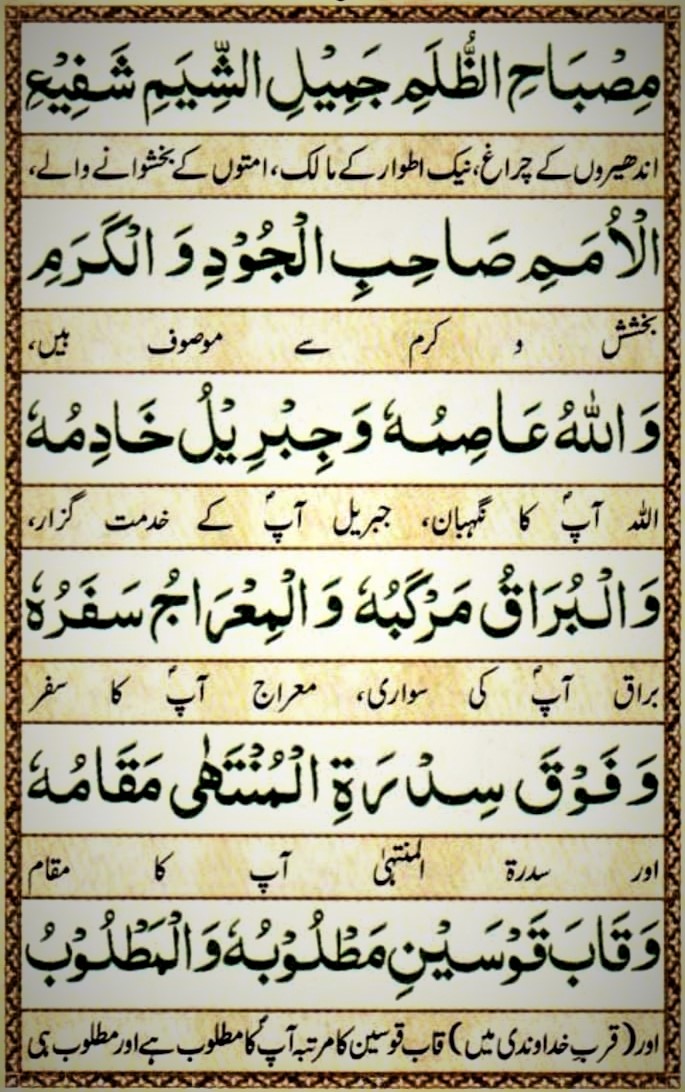 مِصْبَاحِ الظُّلَمِ جَمِيْلِ الشِّيَمِ شَفِيْعِ
اندھیروں کے چراغ، نیک اطوار کے مالک، امتوں کے بخشوانے والے،
الْاُمَمِ صَاحِبِ الْجُوْدِ وَ الْكَرَمِ
بخشش و کرم سے موصوف ہیں،
وَ اللّٰهُ عَاصِمُهٗ وَجِبْرِيْلُ خَادِمُهٗ
اللہ آپؐ کا نگہبان، جبریل آپؐ کے خدمت گزار،
وَالْبُرَاقُ مَرْكَبُهٗ وَالْمِعْرَاجُ سَفَرُهٗ
براق آپؐ کی سواری، معراج آپؐ کا سفر
وَ فَوْقَ سِدْرَةِ الْمُنْتَهٰى مَقَامُهٗ
اور سدرۃ المنتہیٰ آپ کا مقام
وَ قَابَ قَوْسَيْنِ مَطْلُوْبُهٗ وَالْمَطْلُوْبُ
اور (قربِ خداوندی میں) قاب قوسین کا مرتبہ آپؐ کا مطلوب ہے اور مطلوب ہی